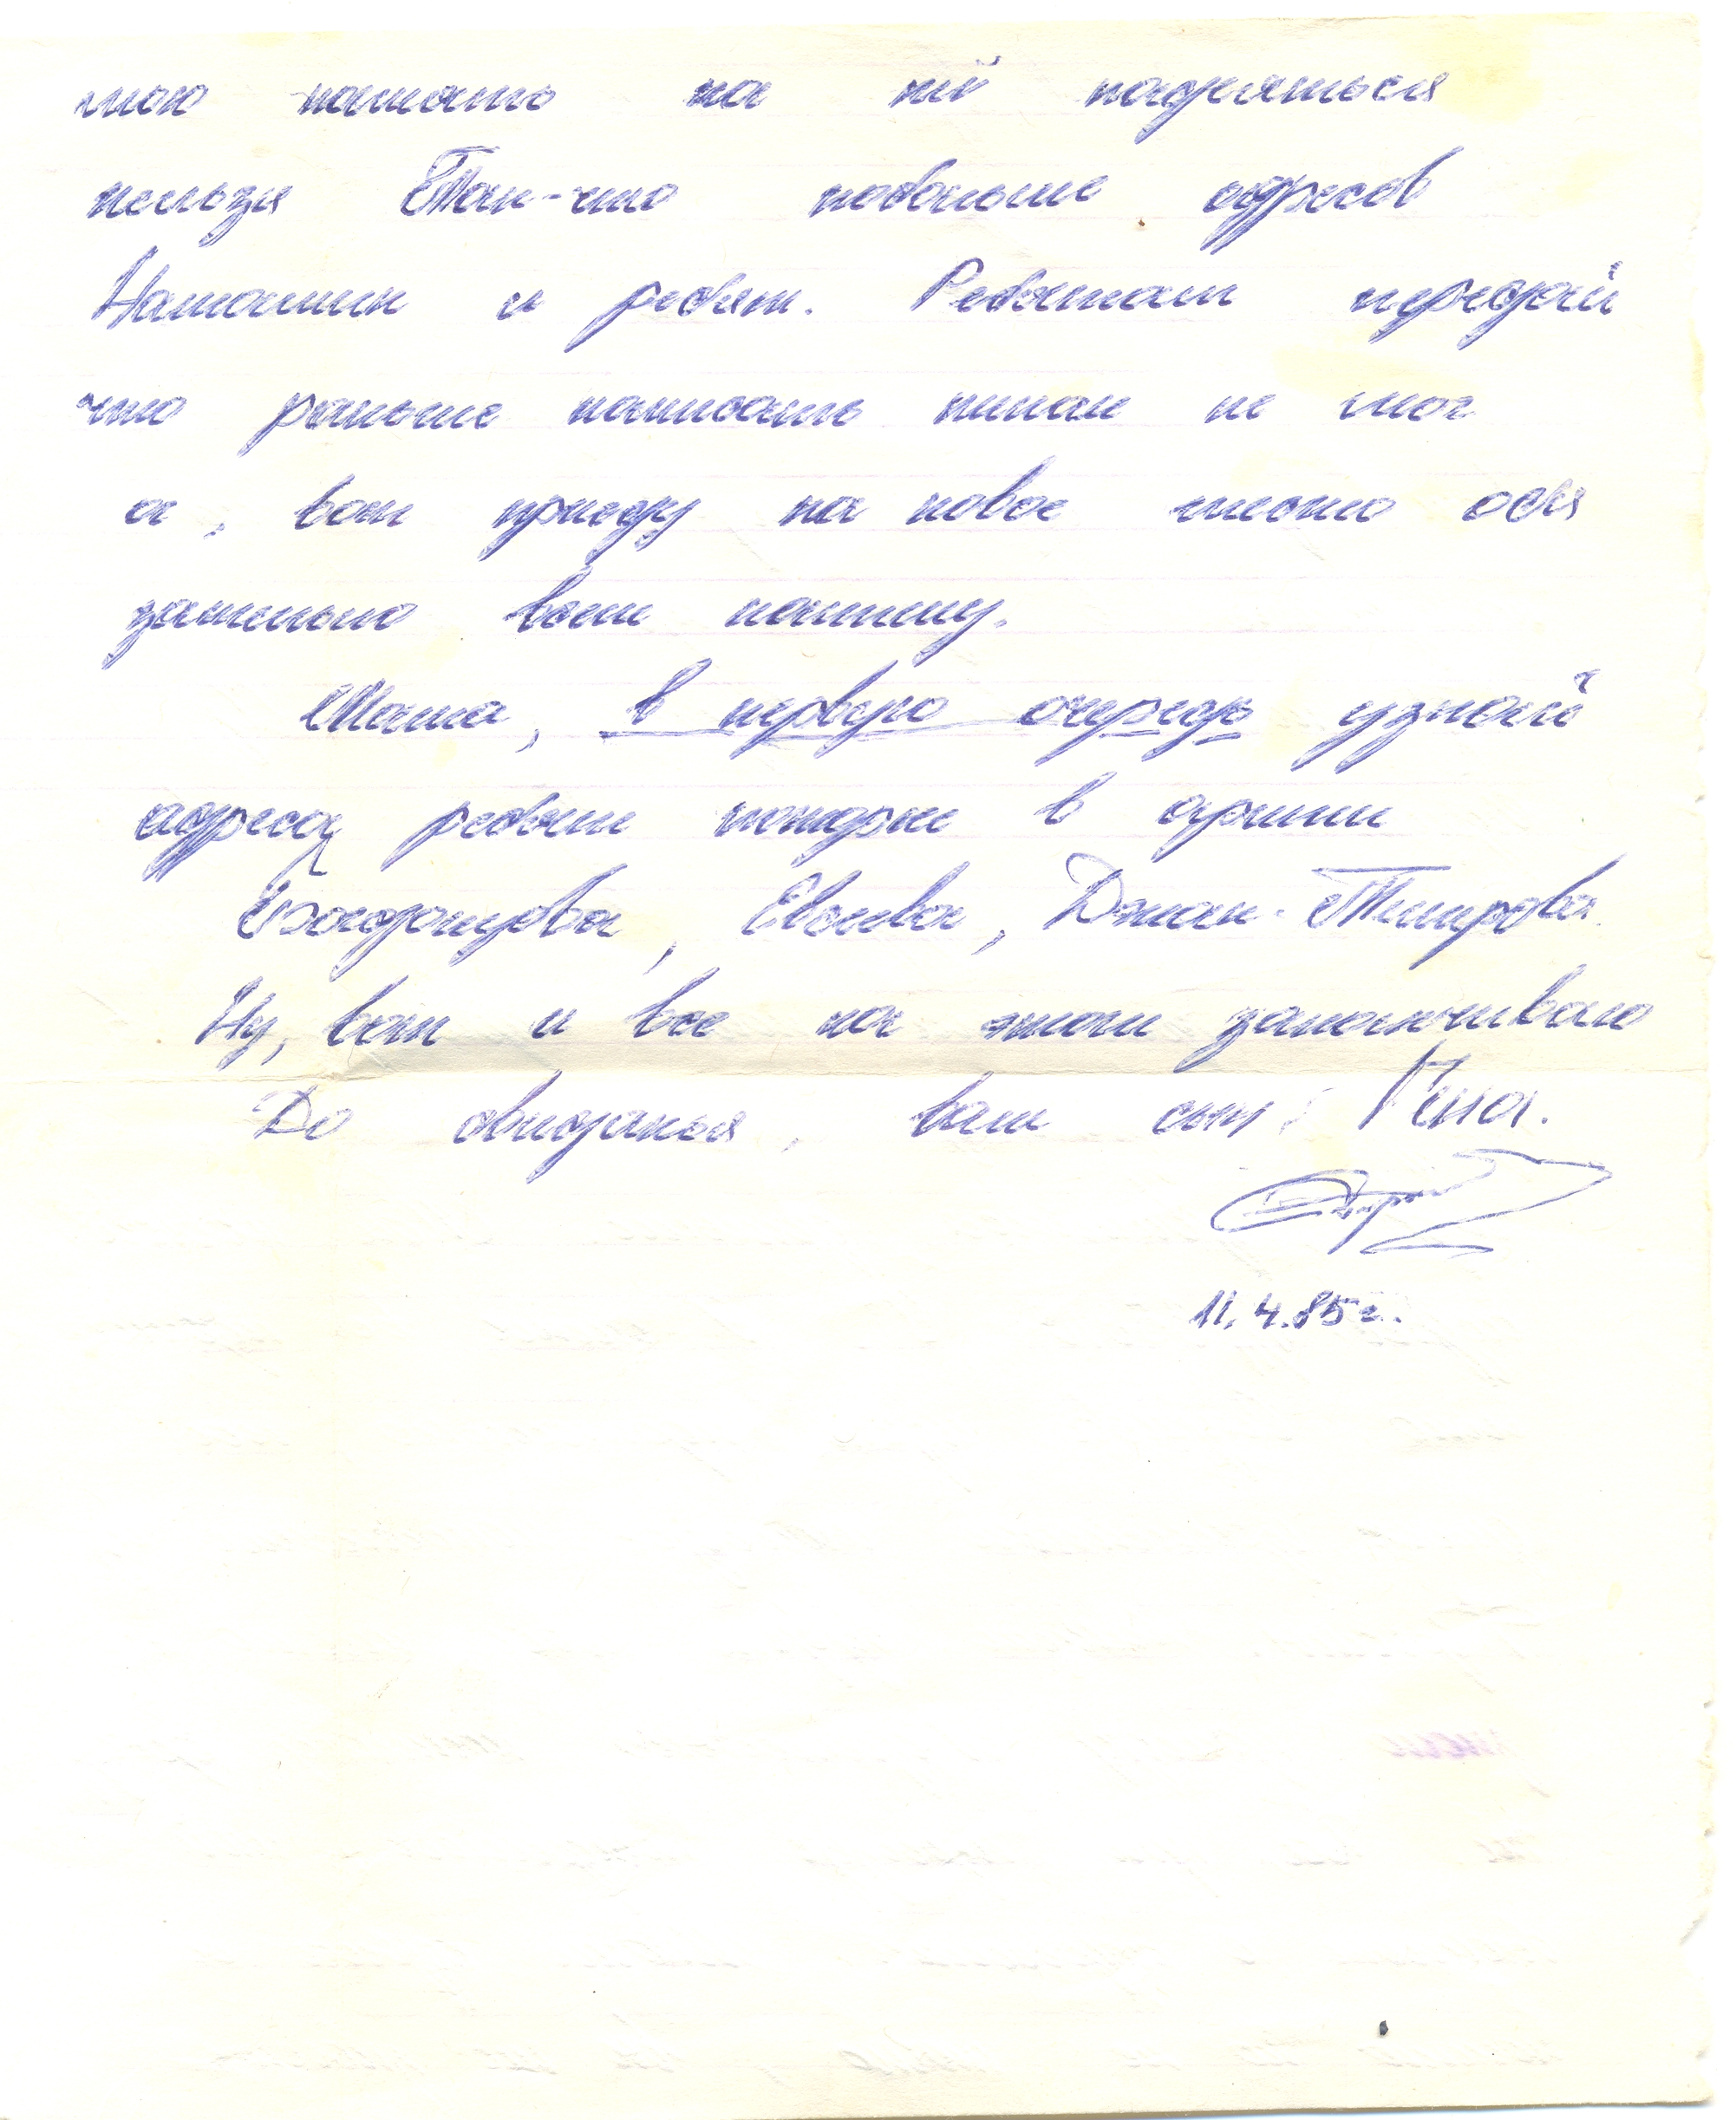 мою память на ней надеяться
нельзя Так-что побольше адресов
Наташин и ребят. Ребятам передай
что раньше написать никак не мог
а, вот приеду на новое место обя
зательно всем напишу.
Мама, в первую очередь узнай
адреса ребят которые в армии
Ну, вот и все на этом заканчиваю
До свиданья, ваш сын: Гена.
11.4.85г.